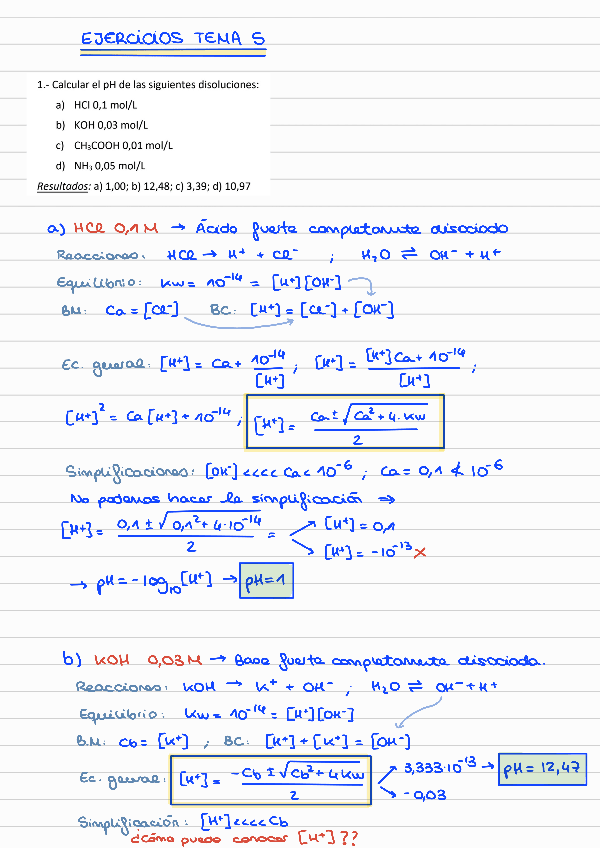 EJERCICIOS TEMA 5
1.- Calcular el pH de las siguientes disoluciones:
a) HCl 0,1 mol/L
b) KOH 0,03 mol/L
c) CH₃COOH 0,01 mol/L
d) NH₃ 0,05 mol/L
Resultados: a) 1,00; b) 12,48; c) 3,39; d) 10,97
a) HCl 0,1 M → Ácido fuerte completamente disociado
Reacciones: HCl → H⁺ + Cl⁻ ; H₂O ⇌ OH⁻ + H⁺
Equilibrio: Kw = 10⁻¹⁴ = [H⁺][OH⁻]
BM: Ca = [Cl⁻] BC: [H⁺] = [Cl⁻] + [OH⁻]
Ec. general: [H⁺] = Ca + 10⁻¹⁴/[H⁺] ; [H⁺] = [H⁺]Ca + 10⁻¹⁴/[H⁺] ;
[H⁺]² = Ca[H⁺] + 10⁻¹⁴ ; [H⁺] = Ca ± √Ca² + 4·Kw / 2
Simplificaciones: [OH⁻] <<<< Ca < 10⁻⁶ ; Ca = 0,1 ≮ 10⁻⁶
No podemos hacer la simplificación ⇒
[H⁺] = 0,1 ± √0,1² + 4·10⁻¹⁴ / 2 = [H⁺] = 0,1
[H⁺] = -10⁻¹³ X
→ pH = -log₁₀[H⁺] → pH = 1
b) KOH 0,03 M → Base fuerte completamente disociada.
Reacciones: KOH → K⁺ + OH⁻ ; H₂O ⇌ OH⁻ + H⁺
Equilibrio: Kw = 10⁻¹⁴ = [H⁺][OH⁻]
B.M: Cb = [K⁺] ; BC: [H⁺] + [K⁺] = [OH⁻]
Ec. general: [H⁺] = -Cb ± √Cb² + 4Kw / 2 3,333·10⁻¹³ → pH = 12,47
-0,03
Simplificación: [H⁺] <<<< Cb
¿Cómo puedo conocer [H⁺]??